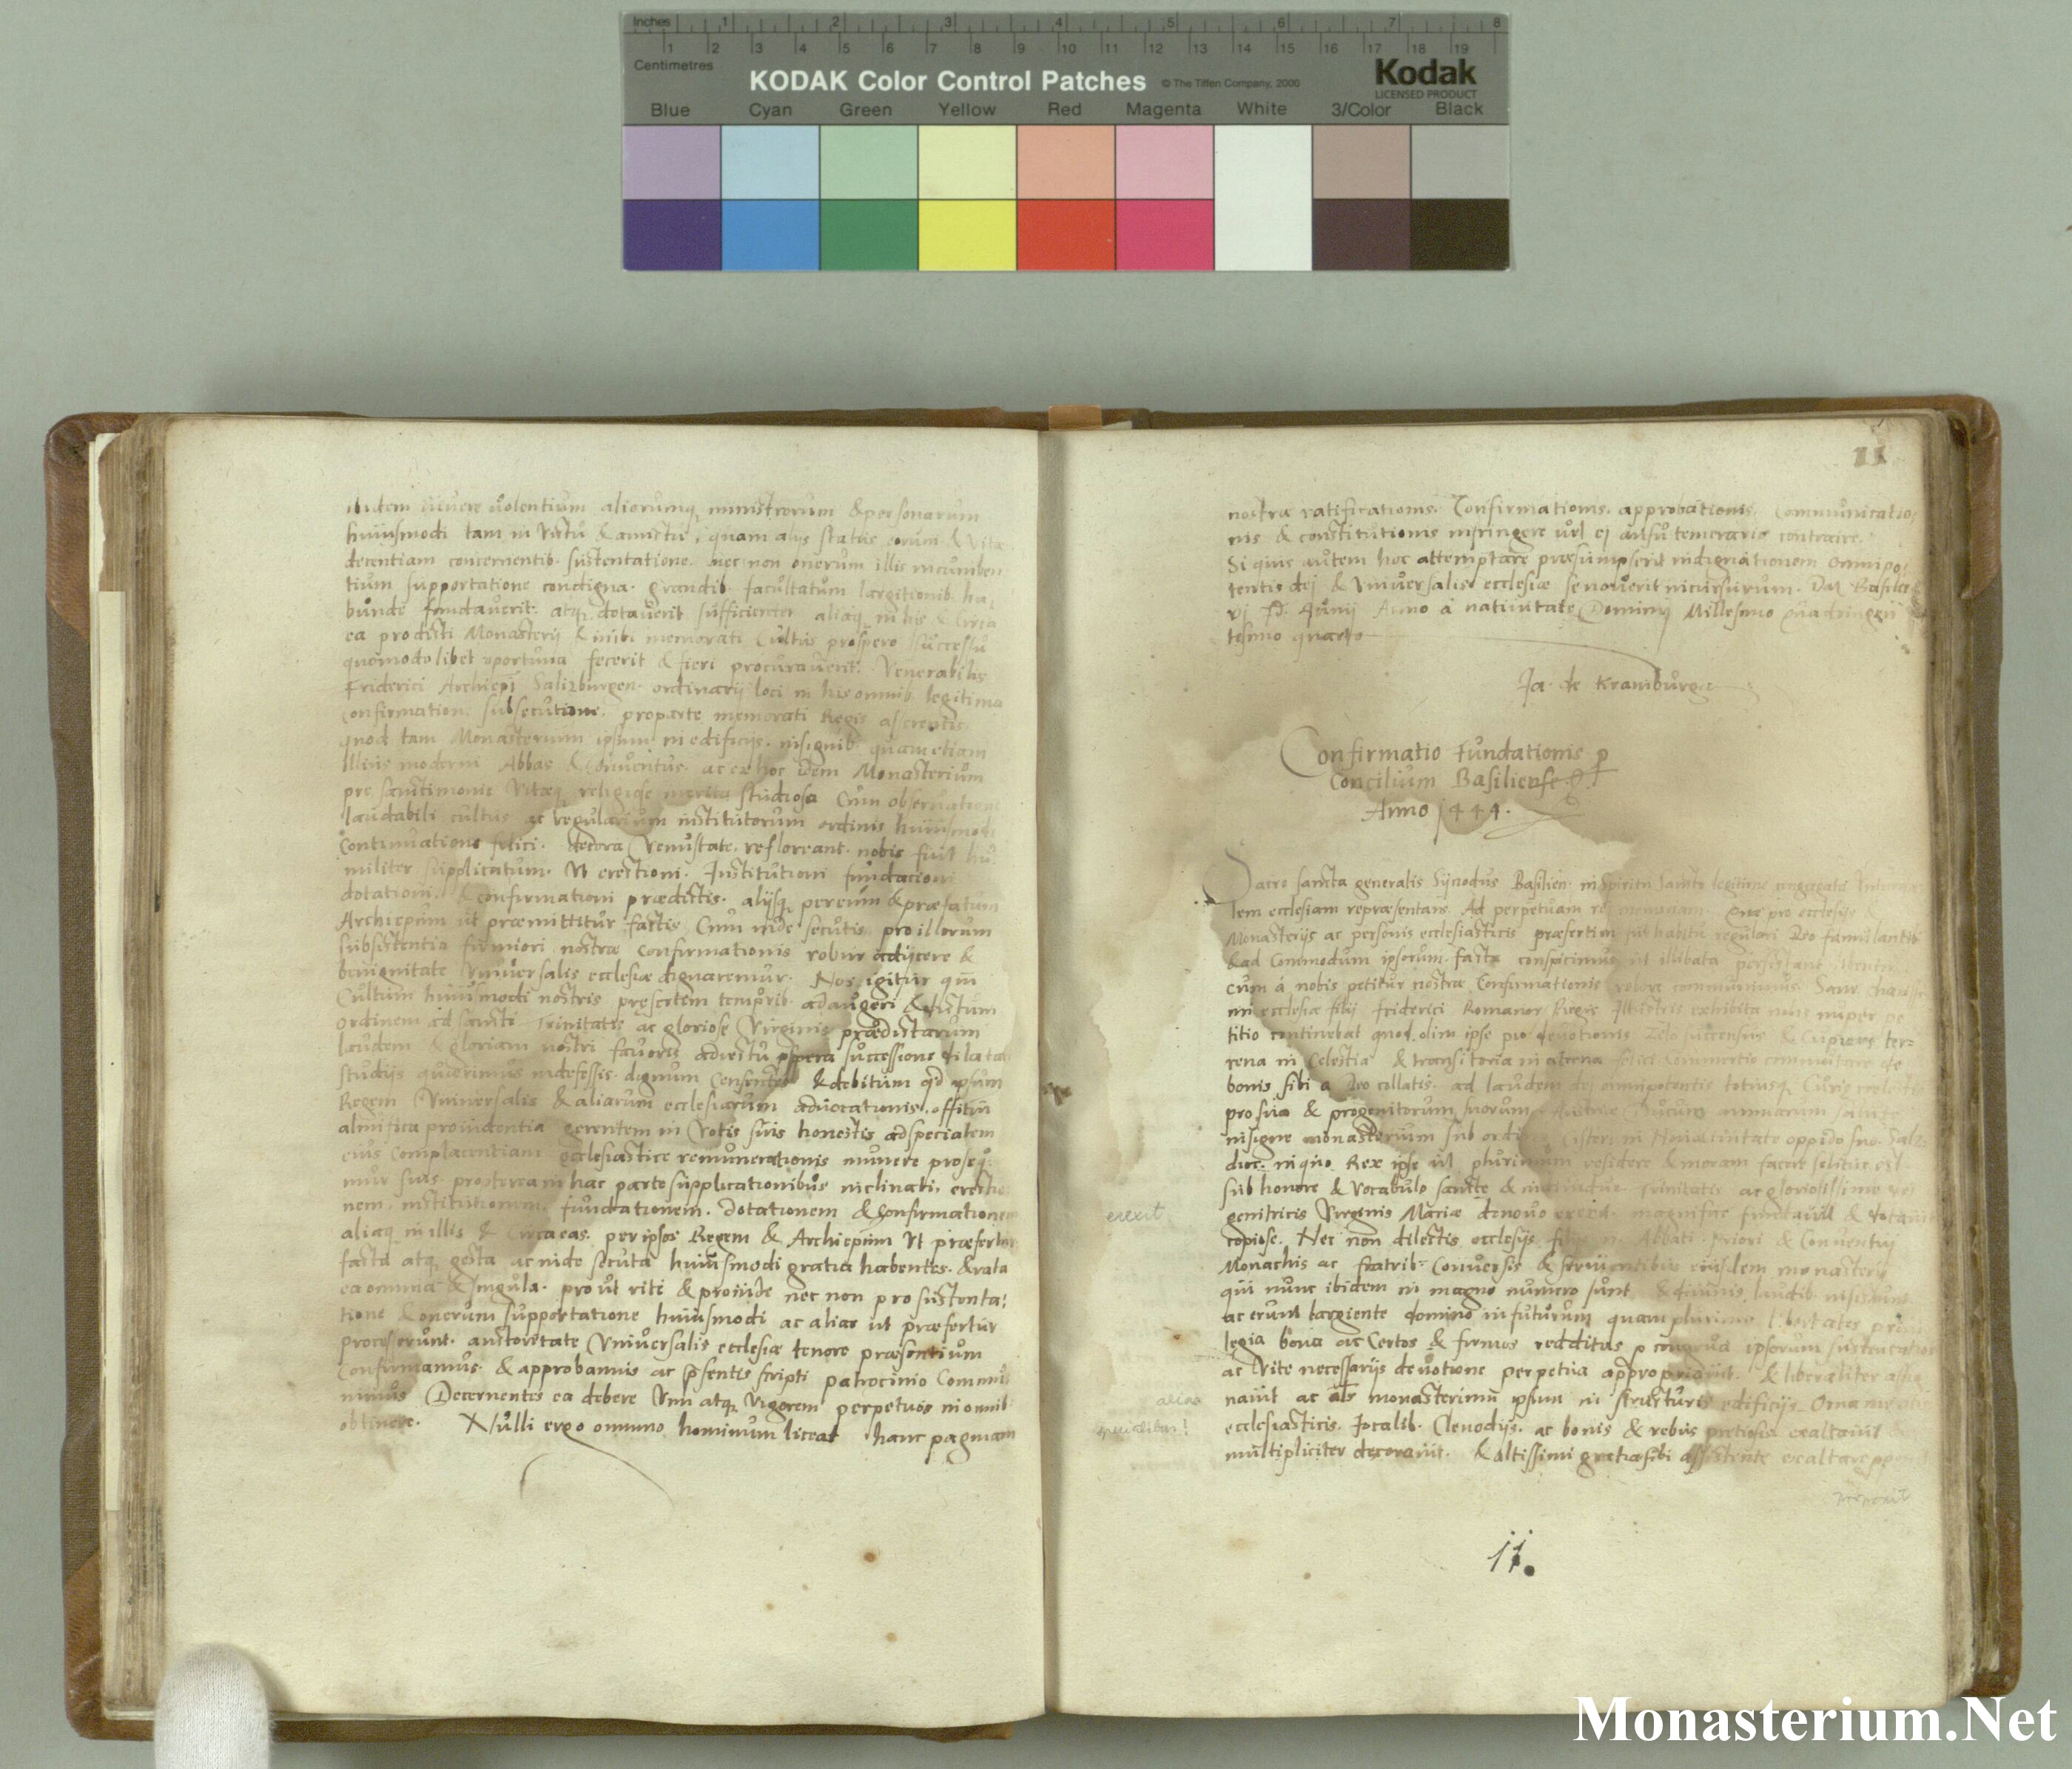 Inches 1 2 3 4 5 6 7 8
1 2 3 4 5 6 7 8 9 10 11 12 13 14 15 16 17 18 19
Centimetres
KODAK Color Control Patches © The Tiffen Company, 2000 Kodak
LICENSED PRODUCT
Blue Cyan Green Yellow Red Magenta White 3/Color Black
volentium aliorumq ministrorum & personarum
huiusmodi tam in victu & amictu, quam alys status eorum & vitæ
decentiam concernentib. sustentatione. nec non onerum illis incumben
tium supportatione condigna. grandib. facultatum largitionib. ha
bunde fundaverit. atq dotaverit sufficienter aliaq in his & circa
ea prædicti Monasterij & inibi memorati cultus prospero successu
quomodolibet oportuna fecerit & fieri procuraverit. Venerabilis
Friderici Archiepi Saltzburgen. ordinarij loci in his omnib. legitima
confirmation. subsecutione. pro parte memorati Regis asserentis
quod tam Monasterium ipsum in edificijs. insignib. quam etiam
Illius moderni Abbas & Conventus. ac ex hoc idem Monasterium
pro sanctimonie vitæq religiose merita studiosa Cum observatione
laudabili cultus ac regularium institutorum ordinis huiusmodi
Continuatione felici. decora Venustate. refloreant. nobis fuit hu
militer supplicatum. Ut erectioni. Institutioni fundationi
dotationi. & confirmationi prædictis. alijsq per eum & præfatum
Archiepm ut præmittitur factis Cum inde secutis pro illorum
subsistentia firmiori nostræ Confirmationis robur adijcere &
benignitate Universalis ecclesiæ dignaremur. Nos igitur qui
Cultum huiusmodi nostris præsertem temporib. adaugeri & dictum
ordinem ad sancti Trinitatis ac gloriose Virginis prædictarum
laudem & gloriam nostri favoris adiectu pspera successione dilatari
studijs quærimus indefessis. dignum Censentes & debitum qd ipsum
Regem Universalis & aliarum ecclesiarum advocationis. offitiu
almifica providentia gerentem in Votis suis honestis ad speciatem
eius Complacentiam ecclesiastice remunerationis munere proseq
mur suis. propterea in hac parte supplicationibus inclinati, erectio
nem. institutionem. fundationem. dotationem & Confirmationem
aliaq in illis & Circa eas. per ipsos Regem & Archiepm Ut præfertur
facta atq gesta ac inde secuta huiusmodi grata habentes. & rata
ea omnia & singula. prout rite & provide nec non pro sustenta
tione & onerum supportatione huiusmodi ac alias ut præfertur
processerunt. auctoritate Universalis ecclesiæ tenore præsentium
Confirmamus. & approbamus ac psentis scripti patrocinio Communi
mus Decernentes ea debere Vim atq. Vigorem perpetuos in omnib.
obtinere. Nulli ergo omnino hominum liceat hanc paginam
11
nostræ ratificationis. Confirmationis. approbationis. Communicatio
nis & constitutionis infringere vel ei ausu temerario contraire.
Si quis autem hoc attemptare præsumpserit indignationem omnipo
tentis dei & Universalis ecclesiæ se noverit incursurum. Dat Basileæ
Junij Anno à nativitate Dominj Millesimo Quadringen
tesimo quarto
Ja. de Kramburg
Confirmatio Fundationis p
Concilium Basiliense
Anno 1444.
Sacro sancta generalis Synodus Basilien. in Spiritu sancto legitime congregata Universa
lem ecclesiam repræsentans Ad perpetuam rei memoriam. Quæ pro ecclesijs &
Monasterijs ac personis ecclesiasticis præsertim sub habitu regulari Deo famulantib
& ad Commodum ipsorum. facta conspicimus ut illibata persistant
cum à nobis petitur nostræ Confirmationis robore communimus. Sane
mi ecclesiæ filij Friderici Romanor Regis Illustris exhibita nobis nuper pe
titio continebat quod olim ipse pio devotionis Zelo succensus & Cupiens ter=
rena in Celestia & transitoria in æterna felici commertio commutare de
bonis sibi a Deo collatis. ad laudem dei omnipotentis totiusq Curiæ cœlestis
pro sua & progenitorum suorum Austriæ Ducum animarum salute
insigne monasterium sub ordine Cister. in Nova Civitate oppido suo. Saltz.
dioc. in quo Rex ipse ut plurimum residere & moram facere solitus est
sub honore & vocabulo sancte & individue Trinitatis ac gloriosissime
genitricis Virginis Mariæ denovo erexit. magnifice fundavit & dotavit
erexit
copiose. Nec non dilectis ecclesijs filijs Abbati Priori & Conventuj
Monachis ac fratrib. Conversis & servientibus eiusdem monasterij
qui nunc ibidem in magno numero sunt. & divinis laudib. insistunt
ac erunt largiente domino in futurum quam plurimas libertates privi
legia bona ac Certos & firmos redditus p congrua ipsorum sustentatione
ac Vite necessarijs devotione perpetua appropriavit. & liberaliter assig
navit ac als monasterium ipsum in structuris edificijs Ornamentis
alias
ecclesiasticis. Jocalib. Clenodijs. ac bonis & rebus pretiosis exaltavit
multipliciter decoravit. & altissimi gratia sibi assistente exaltare pp
11.
Monasterium.Net